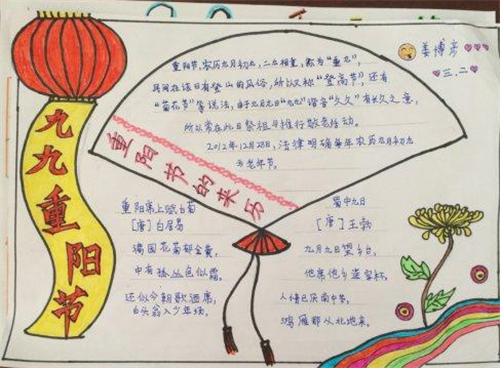 九九重阳节
重阳节的来历
重阳节,农历九月初九,二九相重,称为"重九",
民间在该日有登山的风俗,所以称"登高节",还有
"菊花节"等说法,由于九月九日"九九"谐音"久久"有长久之意,
所以常在此日祭祖与推行敬老活动。
2012年12月28日,法律明确每年农历九月初九
为老年节。
三.二
重阳席上赋白菊
[唐]白居易
满园花菊郁金黄,
中有孤丛色似霜。
还似今朝歌酒席,
白头翁入少年场。
蜀中九日
[唐]王勃
九月九日望乡台,
他席他乡送客杯。
人情已厌南中苦,
鸿雁那从北地来。